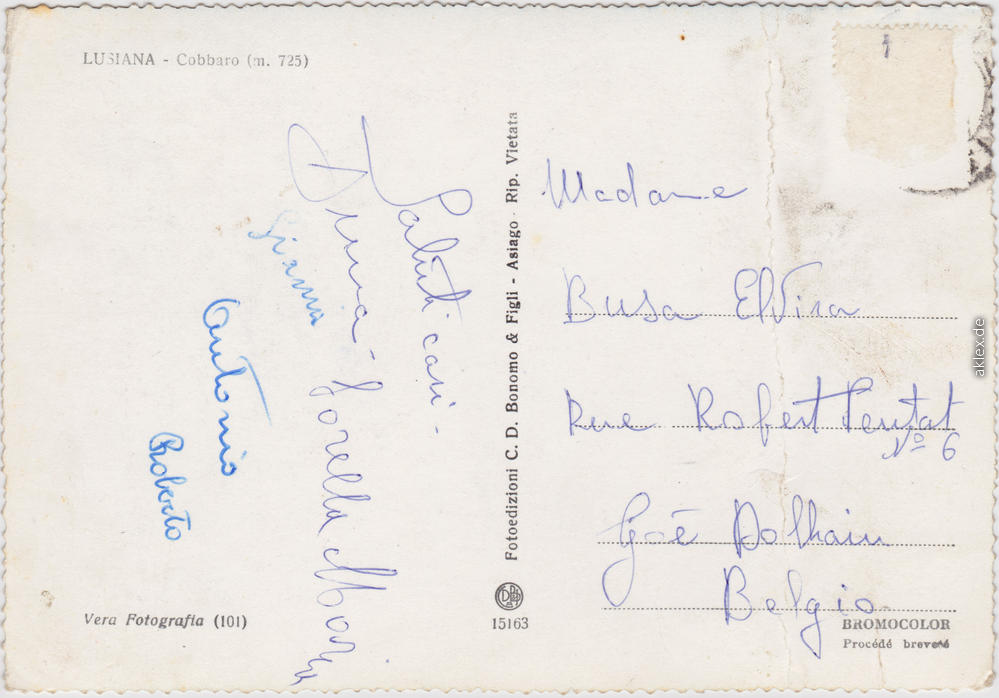 LUSIANA - Cobbaro (m. 725)
Saluti cari -
Irma - Sorella Maria
Gianna
Antonio
Roberto
Vera Fotografia (101)
Fotoedizioni C. D. Bonomo & Figli - Asiago - Rip. Vietata
15163
Madame
Busa Elvira
Rue Robert
No 6
Goé Dolhain
Belgio
BROMOCOLOR
Procédé breveté
aklex.de